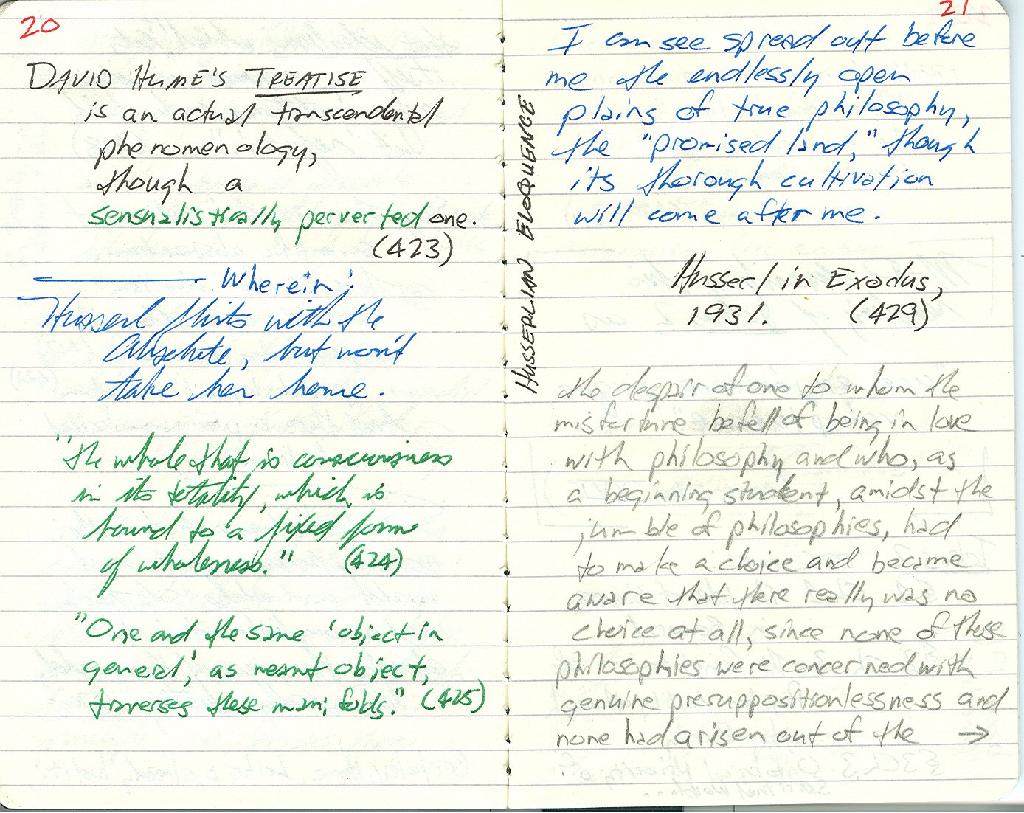 20
DAVID HUME'S TREATISE
is an actual transcendental
phenomenology,
though a
sensualistically perverted one.
(423)
Wherein:
Husserl flirts with the
Absolute, but won't
take her home.
"the whole that is consciousness
in its totality, which is
bound to a fixed form
of wholeness." (424)
"One and the same 'object in
general,' as meant object,
traverses these manifolds." (425)
HUSSERLIAN ELOQUENCE
21
I can see spread out before
me the endlessly open
plains of true philosophy,
the "promised land," though
its thorough cultivation
will come after me.
Husserl in Exodus,
1931. (429)
the despair of one to whom the
misfortune befell of being in love
with philosophy and who, as
a beginning student, amidst the
jumble of philosophies, had
to make a choice and became
aware that there really was no
choice at all, since none of these
philosophies were concerned with
genuine presuppositionlessness and
none had arisen out of the →